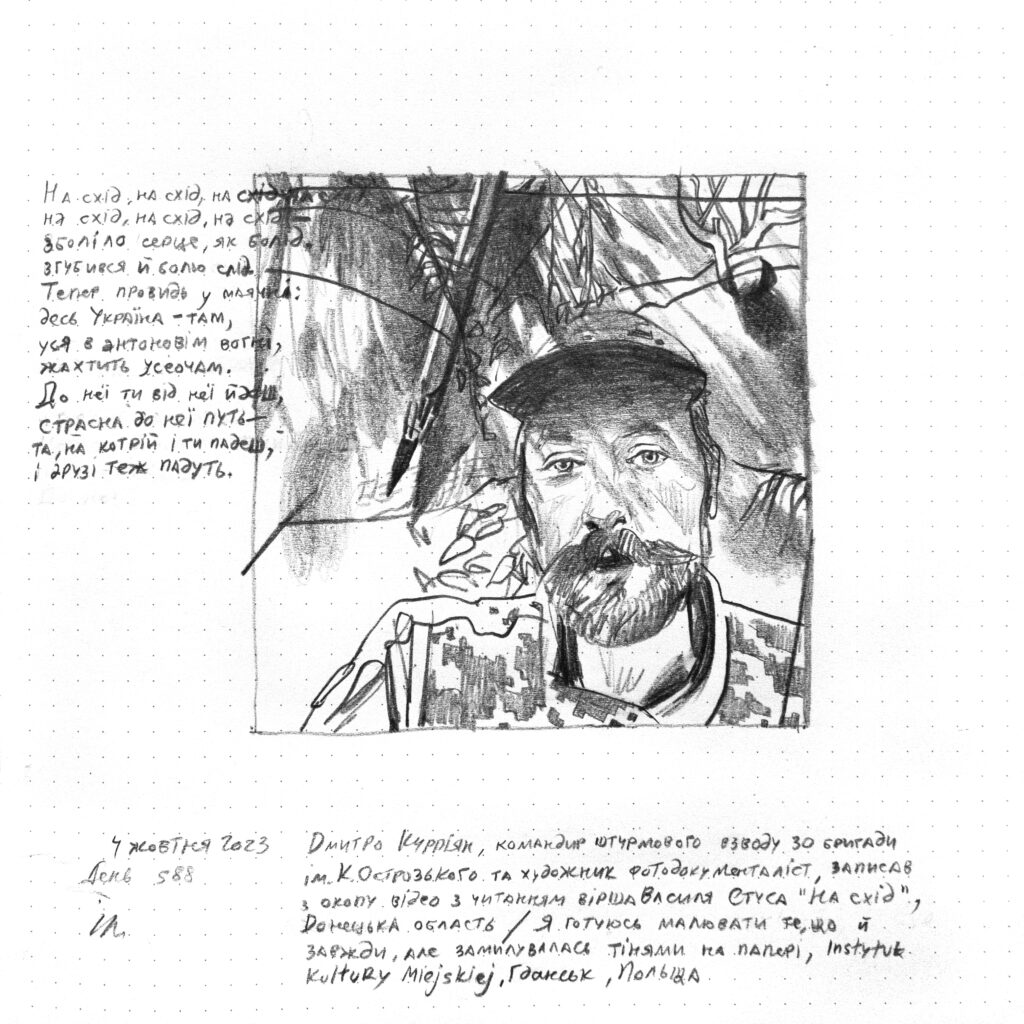 На схід, на схід, на схід, на схід,
на схід, на схід, на схід —
зболіло серце, як болід.
згубився й болю слід
Тепер провидь у маячні:
десь Україна – там,
уся в антоновім вогні,
жахтить усеочам.
До неї ти від неї йдеш,
страсна до неї путь —
та, на котрій і ти падеш,
і друзі теж падуть.
4 жовтня 2023
День 588
Дмитро Купріян, командир штурмового взводу 30 бригади
ім. К. Острозького та художник фотодокументаліст, записав
з окопу відео з читанням вірша Василя Стуса "На схід",
Донецька область / Я готуюсь малювати те, що й
завжди, але замилувалась тінями на папері, Instytut
Kultury Miejskiej, Гданськ, Польща